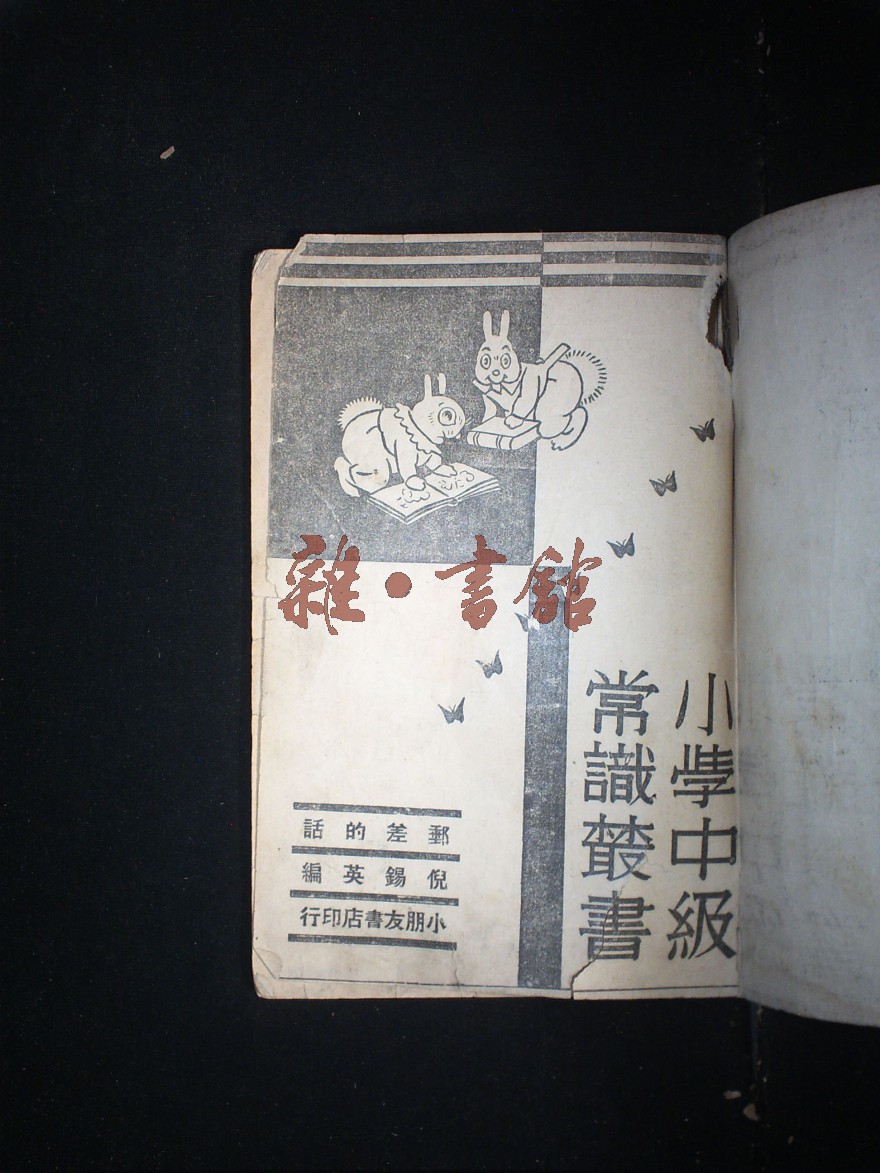 雜·書館
小學中級
常識叢書
郵差的話
倪錫英編
小朋友書店印行